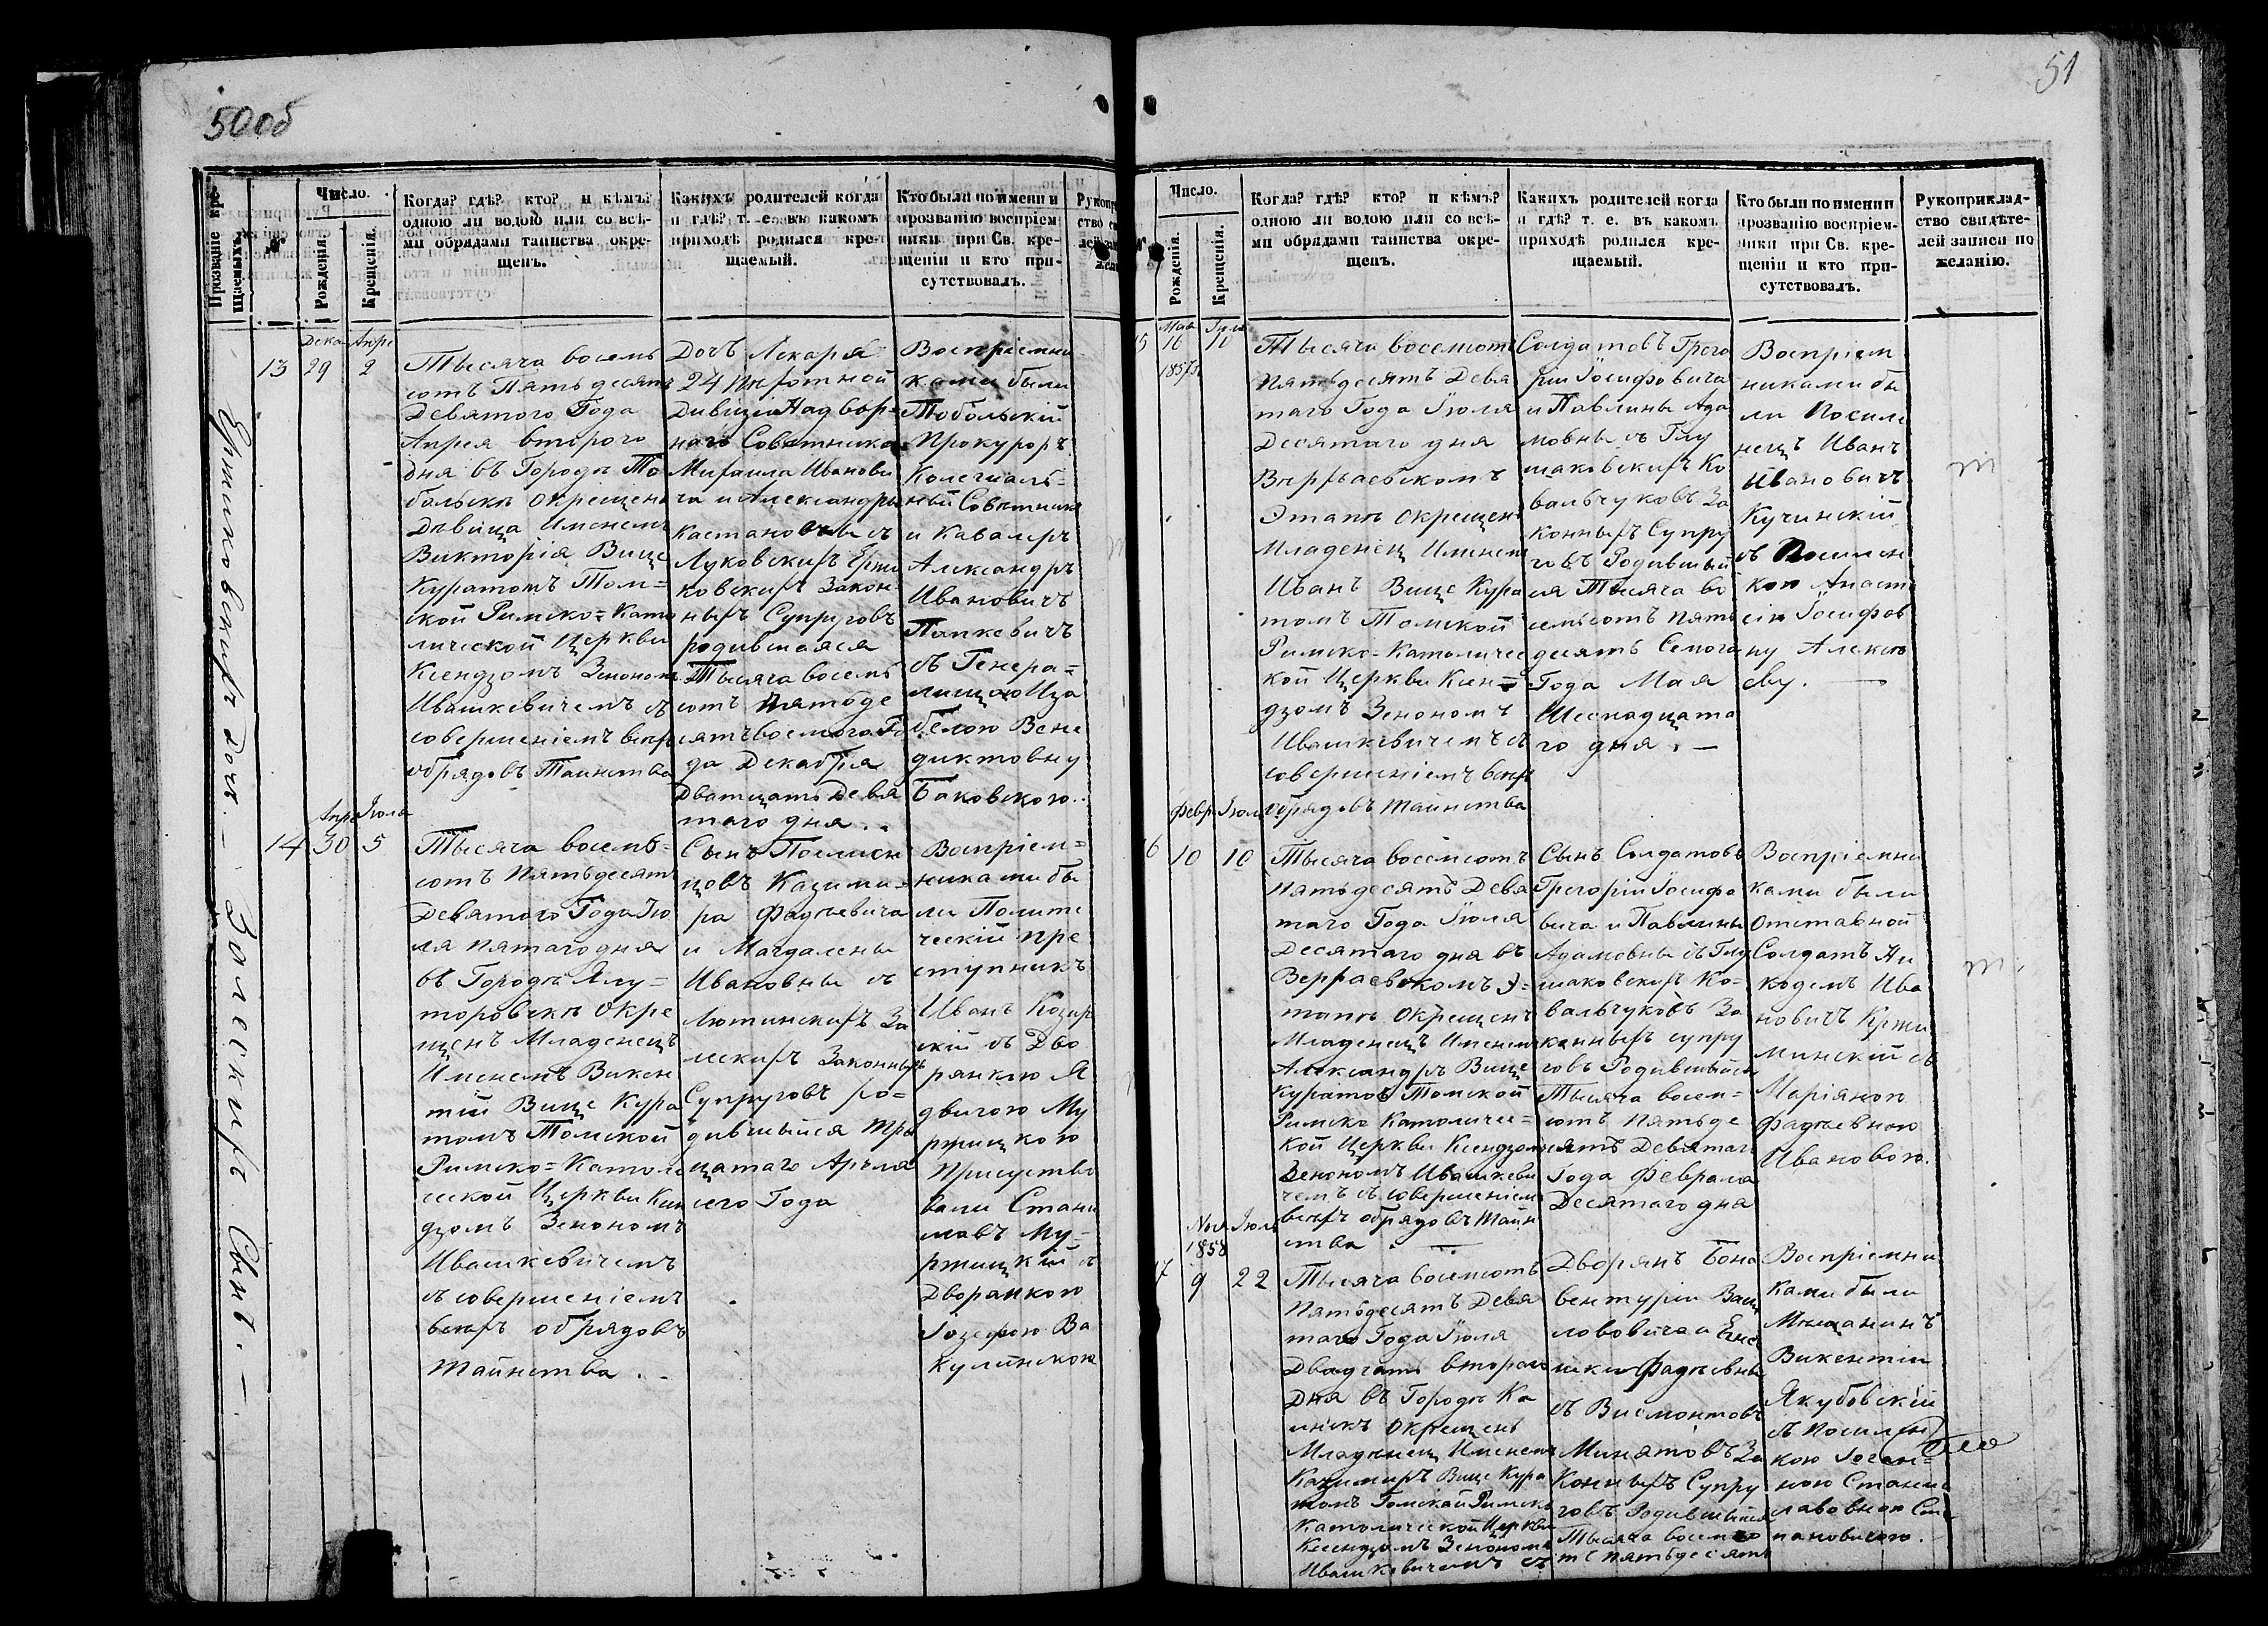 50об
51
Прозваніе кре-
щаемыхъ.
№
Число.
Рожденія.
Крещенія.
Когда? гдѣ? кто? и кѣмъ?
одною ли водою или со всѣ-
ми обрядами таинства окре-
щенъ.
Какихъ родителей когда
и гдѣ? т. е. въ какомъ
приходѣ родился кре-
щаемый.
Кто были по имени и
прозванію воспріем-
ники при Св. кре-
щеніи и кто при-
сутствовалъ.
13
Дека
29
Апре
2
Тысяча восемь
сотъ Пятьдесятъ
Девятого Года
Апреля второго
дня въ Городѣ То
больскѣ окрещена
Дѣвица Именемъ
Викторія Вице
Куратомъ Том=
ской Римско=Като
лической Церкви
Ксендзомъ Зеноном
Ивашкевичемъ съ
совершеніемъ всѣхъ
обрядовъ Таинства
Дочь Лекаря
24 Пѣхотной
Дивизіи Надвор=
наго Советника
Михаила Иванови
ча и Александры
съ
Луковскихъ
ковскихъ Закон
ныхъ Супруговъ
родившаяся
Тысяча восемь
сотъ Пятьде
сятъ восьмого Го
да Декабря
Двадцать Девя
таго дня..
Воспріемни
ками были
Тобольскій
Прокуроръ
Колегіаль=
ный Советникъ
и Кавалеръ
Александръ
Ивановичъ
Попкевичъ
съ Генера=
лшцою Иза
белою Вене
диктовну
Баковскою..
14
Апре
30
Іюля
5
Тысяча восемь=
сотъ Пятьдесятъ
Девятого Года Ію
ля пятаго дня
въ Городѣ Ялу=
торовскѣ Окре
щенъ Младенецъ
Именемъ Викен
тій Вице Кура
томъ Томской
Римско=Католи
ческой Церкви Ксен
дзомъ Зенономъ
Ивашкевичемъ
съ совершеніемъ
всѣхъ обрядовъ
Таинства..
Сынъ Поселен
цовъ Казими=
ра Фадѣевича
и Магдалены
Ивановны съ
Лютинскихъ За
лескихъ Законныхъ
Супруговъ ро=
дившыйся Тры
цатаго Апреля
сего Года
Воспріем=
никами бы
ли Полити
ческій пре
ступникъ
Иванъ
съ Дво
рянкою Я
двигою Му
ржицкою
Присуство
вали Стани
славъ Му=
ржицкій съ
Дворянкою
Іозефою Ва
кулинскою
Залескихъ Сынъ. —
Число.
Рожденія.
Крещенія.
Когда? гдѣ? кто? и кѣмъ?
одною ли водою или со всѣ-
ми обрядами таинства окре-
щенъ.
Какихъ родителей когда
и гдѣ? т. е. въ какомъ
приходѣ родился кре-
щаемый.
Кто были по имени и
прозванію воспріем-
ники при Св. кре-
щеніи и кто при-
сутствовалъ.
Рукоприклад-
ство свидѣте-
лей записи по
желанію.
15
Мая
16
1857
Іюля
10
Тысяча восемсотъ
Пятьдесятъ Девя
таго Года Іюля
Десятаго дня
Этапѣ окрещенъ
Младенец Именем
Иванъ Вице Кура
томъ Томской
Римско=Католичес
кой Церкви Ксен=
дзомъ Зенономъ
Ивашкевичемъ съ
совершеніемъ всѣхъ
обрядовъ таинства
Солдатовъ Григо
рій Іосифовича
и Павлины Ада
мовны съ Глу
шаковскихъ Ко
вальчуковъ За
конныхъ Супру
говъ Родившый
ся Тысяча во
семьсотъ пять
десятъ Семого
Года Мая
Шеснадцата
го дня. —
Воспріем
никами бы
ли Поселе
нецъ Иванъ
Ивановичъ
Кучинскій
съ Поселен
кою Анаста
сію Іосифов
ну Алексе
еву. —
16
Февр
10
Іюля
10
Тысяча восемсотъ
Пятьдесятъ Девя
таго Года Іюля
Десятаго дня въ
Э=
тапѣ Окрещенъ
Младенецъ Именемъ
Александръ Вице
Куратомъ Томской
Римско Католичес=
кой Церкви Ксендзомъ
Зенономъ Ивашкеви
чемъ съ совершеніем
всѣхъ обрядовъ Таин
ства
Сынъ Солдатовъ
Григорій Іосифо
вича и Павлины
Адамовны съ Глу
шаковскихъ Ко=
вальчуковъ За
конныхъ супру
говъ Родившыйся
Тысяча восем=
сотъ Пятьде
сятъ Девятаго
Года Февраля
Десятаго дна
Воспріемни
ками были
Отставной
Солдатъ Ни
кодемъ Ива
новичъ Кржи
минскій съ
Маріянною
Фадѣевною
Ивановою.
17
Ноя
1858
9
Іюля
22
Тысяча восемсотъ
Пятьдесятъ Девя
таго Года Іюля
Двадцать второго
Дня въ Городѣ Ка
инскѣ Окрещенъ
Младенец Именемъ
Казимиръ Вице Кура
томъ Томской Римско
Католической Церкви
Ксендзомъ Зенономъ
Ивашкевичемъ съ
Дворянъ Бона
вентурія
и
Фадѣевны
съ Висмонтовъ
Минятовъ За
конныхъ Супру
говъ Родившыйся
Тысяча восемсо
тъ пятьдесятъ
Воспріемни
ками были
Мѣщанинъ
Викентій
Якубовскій
съ Поселен
кою Іоган=
ною Станис
лавовною Сте
пановичою.